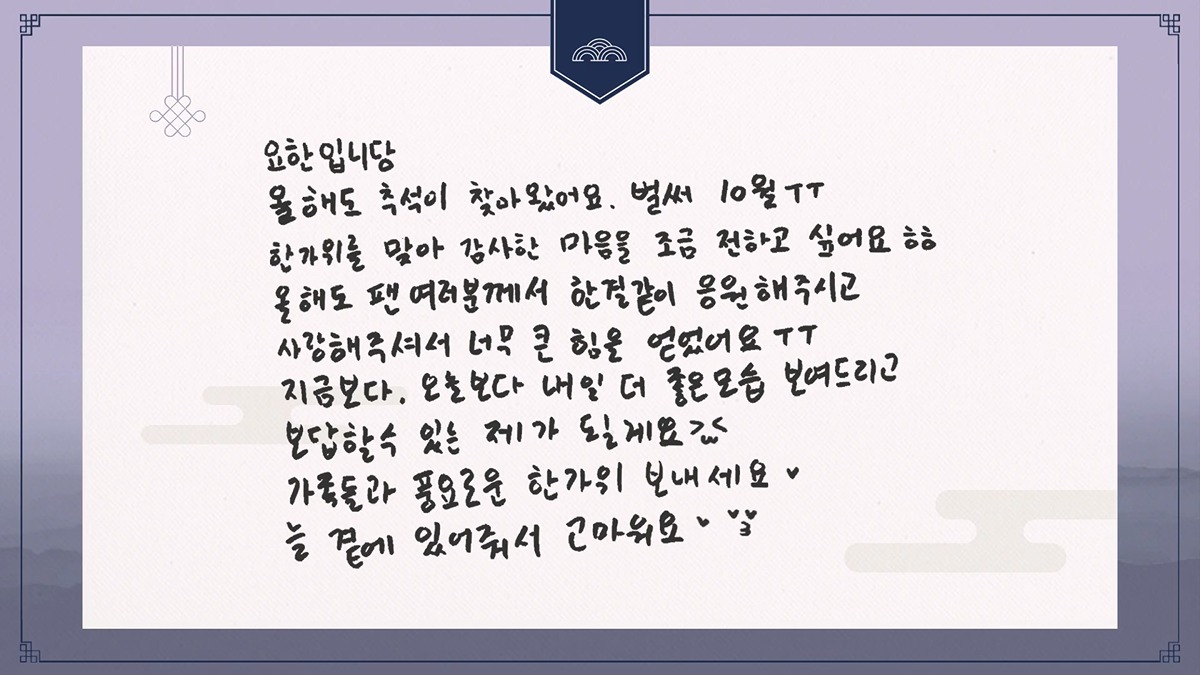 요한입니당
올해도 추석이 찾아왔어요. 벌써 10월ㅜㅜ
한가위를 맞아 감사한 마음을 조금 전하고 싶어요 ㅎㅎ
올해도 팬 여러분께서 한결같이 응원해주시고
사랑해주셔서 너무 큰 힘을 얻었어요 ㅜㅜ
지금보다, 오늘보다 내일 더 좋은모습 보여드리고
보답할수 있는 제가 될게요
가족들과 풍요로운 한가위 보내세요 ♥
늘 곁에 있어줘서 고마워요 ♥ ♥3♥